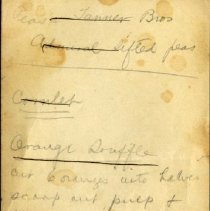 Peas Tanner Bros
Admiral Sifted peas
Cornlet
Orange Souffle
cut 6 oranges into halves
scoop out pulp &